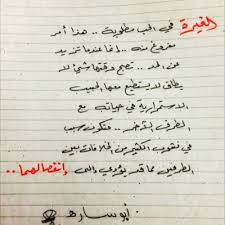 الغيرة في الحب مطلوبة .. هذا أمر
مفروغ منه .. إنما عندما تزيد
عن الحد .. تصبح وقتها شيء لا
يطاق لا يستطيع معها الحبيب
الاستمرارية في حياته مع
الطرف الآخر .. فتكون سبب
في نشوب الكثير من الخلافات بين
الطرفين مما قد يؤدي إلى إنفصالهما ..
أبو سارة